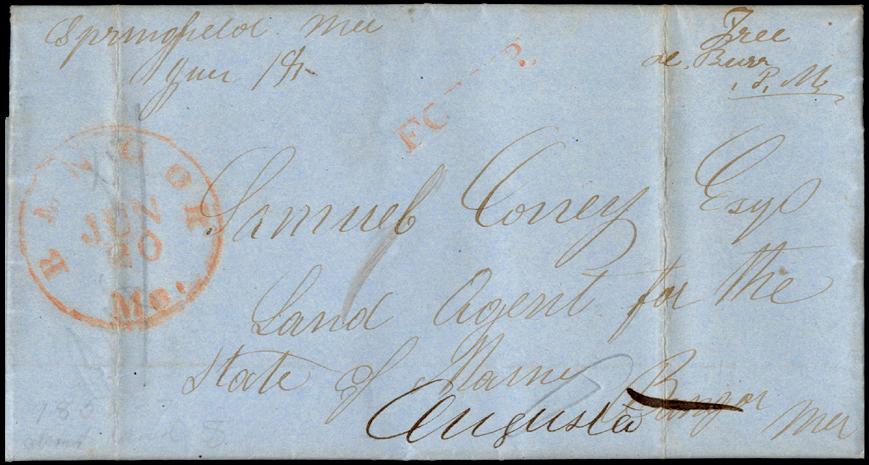 Springfield Me
Jun 18
Free
P. M.
BANGOR
JUN
20
Me.
Samuel Coney Esq
Land Agent for the
State of Maine
Bangor
Augusta Me